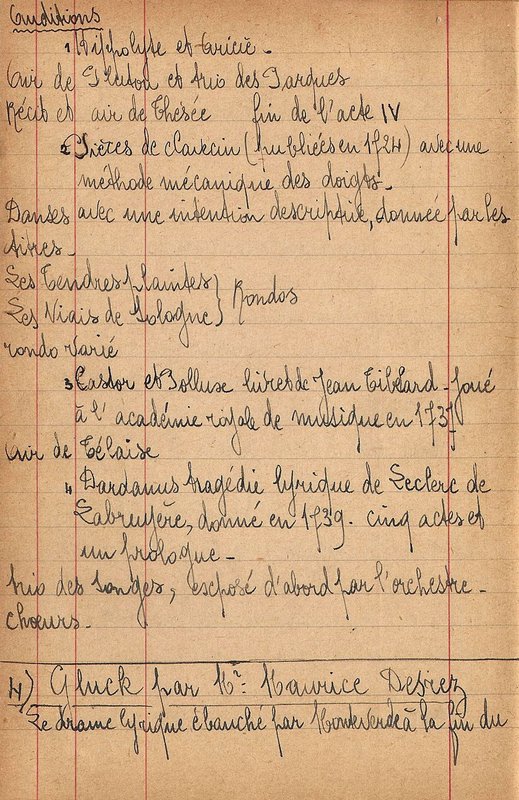 Auditions
1 Hippolyte et Aricie -
Air de Pluton et trio des Parques
Récit et air de Thésée fin de l'acte IV
2 Pièces de clavecin (publiées en 1724) avec une
méthode mécanique des doigts -
Danses avec une intention descriptive, donnée par les
titres -
Les Tendres plaintes
Les Niais de Sologne } Rondos
rondo varié
3 Castor et Pollux livret de Jean - joué
à l'académie royale de musique en 1737
Air de Télaïse
4 Dardanus tragédie lyrique de Leclerc de
Labruyère, donné en 1739. cinq actes et
un prologue -
trio des songes, exposé d'abord par l'orchestre -
chœurs -
4) Gluck par Mr: Maurice
Le drame lyrique ébauché par Monteverde à la fin du